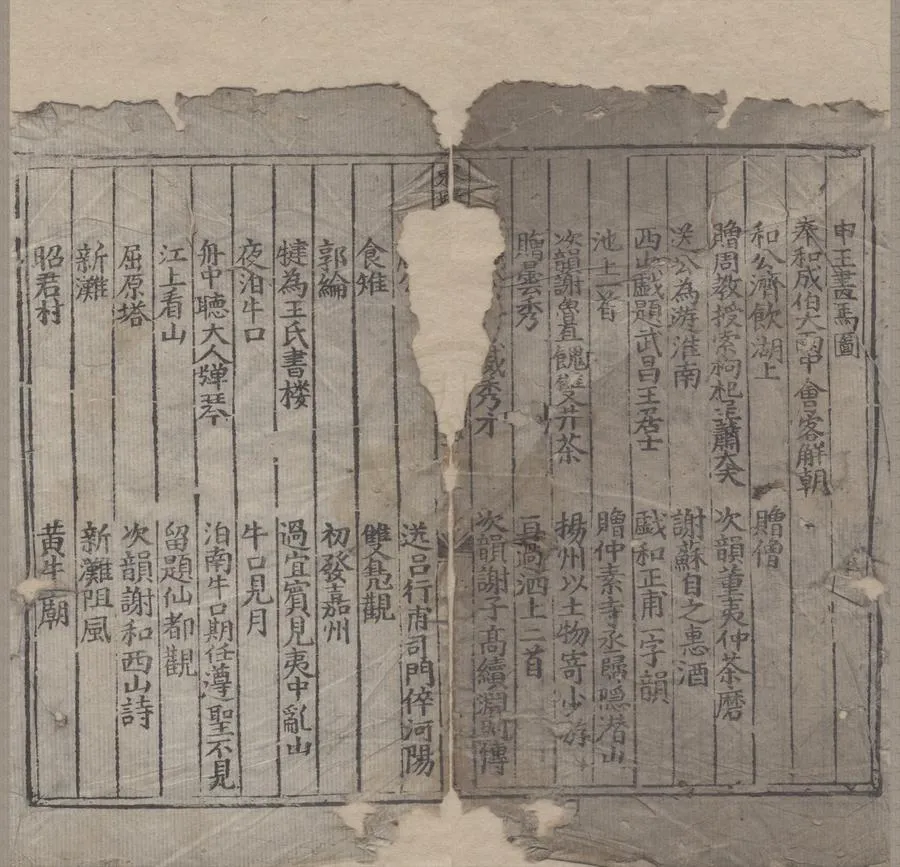 申王畫馬圖
奉和成伯大雨中會客解嘲
和公濟飲湖上　贈僧
贈周教授索枸杞呈蕭大夫　次韻董夷仲茶磨
送公為游淮南　謝蘇自之惠酒
西山戲題武昌王居士　戲和正甫一字韻
池上二首　贈仲素寺丞歸隱潜山
次韻謝魯直餽雙井茶　揚州以土物寄少游
贈曇秀　再過泗上二首
秀才　次韻謝子髙續淵明傳
送呂行甫司門倅河陽
食雉　雙鳧觀
郭綸　初發嘉州
犍為王氏書楼　過宜賓見夷中亂山
夜泊牛口　牛口見月
舟中聽大人彈琴　泊南牛口期任遵聖不見
江上看山　留題仙都觀
屈原塔　次韻謝和西山詩
新灘　新灘阻風
昭君村　黄牛廟